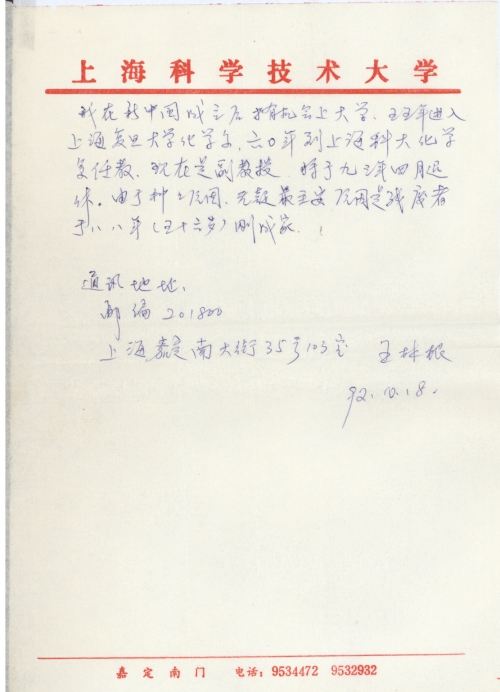 上海科学技术大学
我在新中国成立后才有机会上大学，五五年进入
上海复旦大学化学系，六〇年到上海科大化学
系任教，现在是副教授，将于九三年四月退
休。由于种种原因，无疑最主要原因是残废者
于八八年（五十六岁）刚成家。
通讯地址：
邮编 201800
上海嘉定南大街35号103室 王林根
92.10.18.
嘉定南门 电话：9534472 9532932